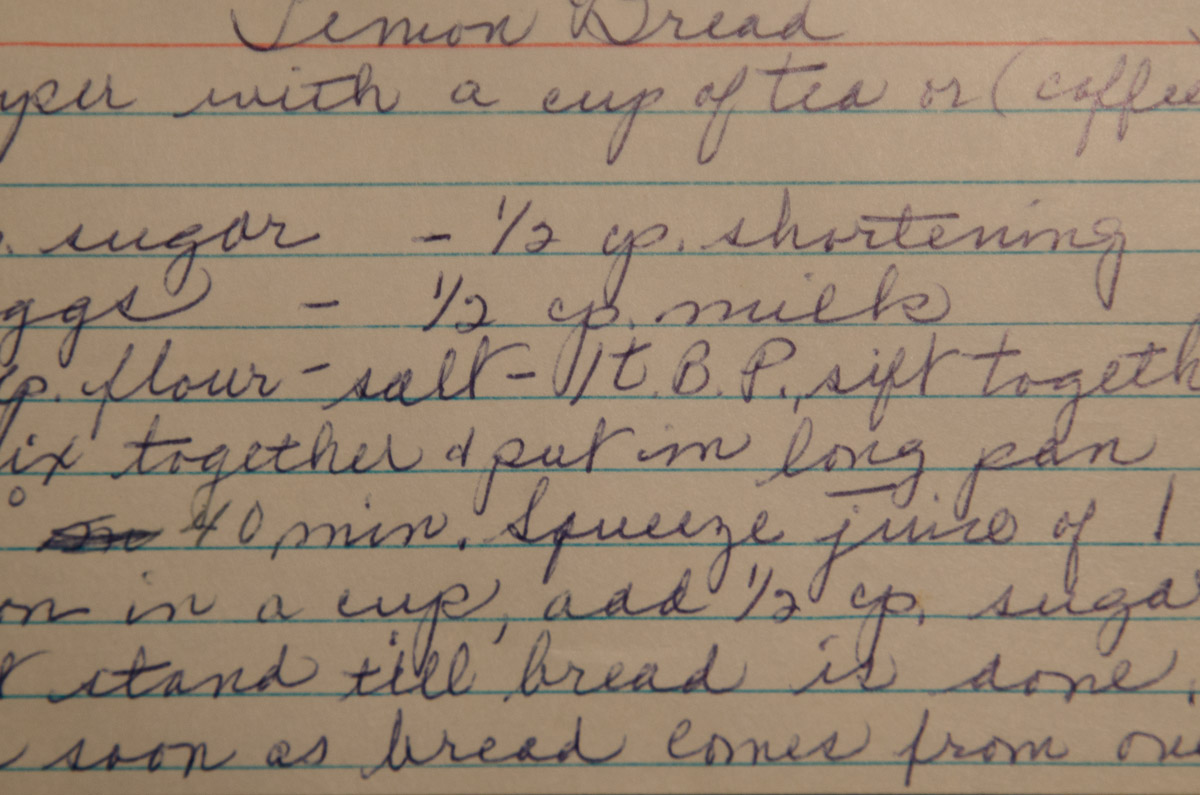 Lemon Bread
yper with a cup of tea or (coffee
. sugar - 1/2 cp. shortening
ggs - 1/2 cp. milk
cp. flour - salt - 1 t. B.P., sift togeth
ix together & put in long pan
° 40 min. Squeeze juice of 1
on in a cup, add 1/2 cp. sugar
t stand till bread is done.
soon as bread comes from ove